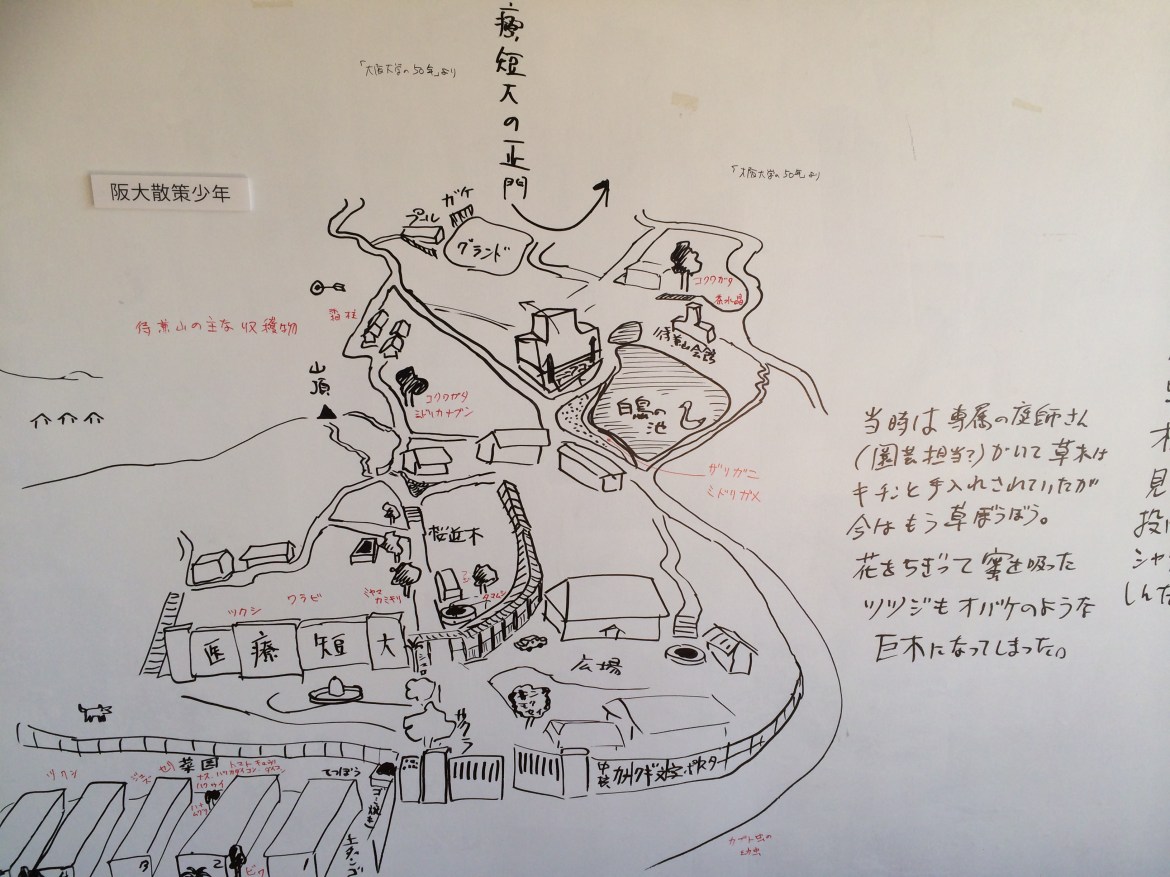 療短大の正門
「大阪大学の50年」より
「大阪大学の50年」より
阪大散策少年
ガケ
プール
グランド
コクワガタ
茶水晶
待兼山の主な収穫物
霜柱
待兼山会館
山頂
コクワガタ
ミドリカナブン
白鳥の
池
ザリガニ
ミドリガメ
当時は専属の庭師さん
(園芸担当?)がいて草木は
キチンと手入れされていたが
今はもう草ぼうぼう。
花をちぎって蜜を吸った
ツツジもオバケのような
巨木になってしまった。
見
投
シャ
しんだ
桜並木
フジ
タマムシ
ミヤマ
カミキリ
ツクシ
ワラビ
医療短大
広場
サクラ
菜園
トマト
キュウリ
ナス
ハツカダイコン
ハクサイ
ツクシ
セリ
てつぼう
ゴミ焼き
土ダンゴ
中核
カクカク文字ポスター
カブト虫の
幼虫
ビワ
3
2
1